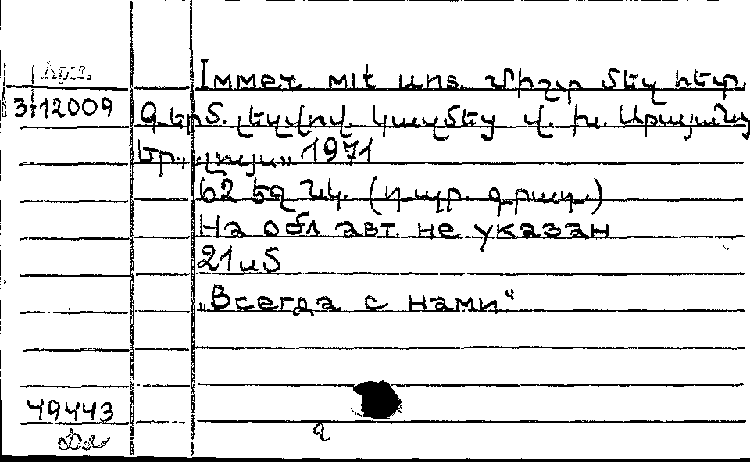 Арм.
Immer mit uns. Միշտ մեզ հետ.
3-12009 Գերմ. լեզվով. կազմեց Վ. Խ. Աբաջյանց
Եր., „Լույս„ 1971
62 եզ նկ. (դպր. գրադ.)
На обл авт. не указан
21սՏ
„Всегда с нами“
49443